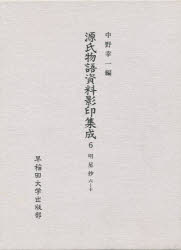 中野幸一編
源氏物語資料影印集成
6 明星抄 六～七
早稲田大学出版部